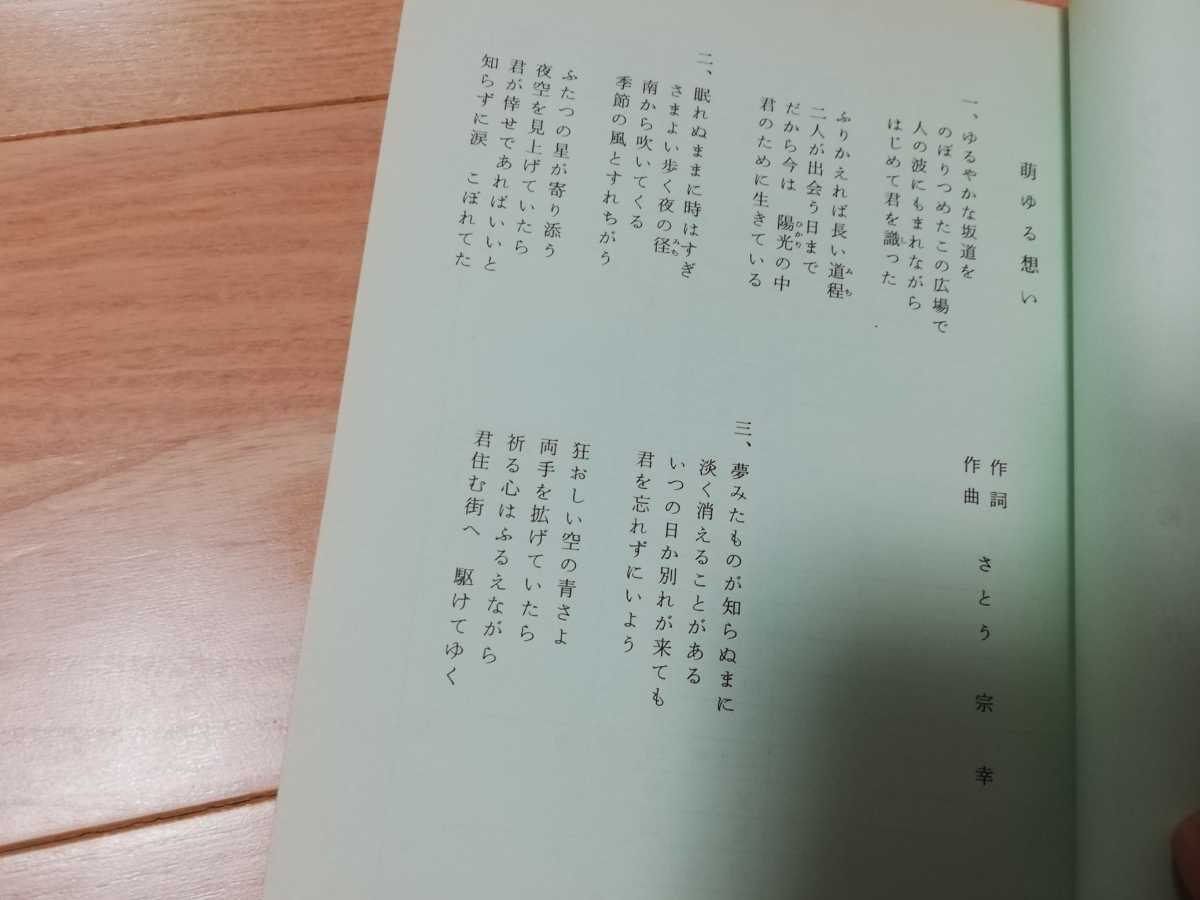 萌ゆる想い
作詞
作曲
さとう 宗幸
一、ゆるやかな坂道を
のぼりつめたこの広場で
人の波にもまれながら
はじめて君を識った
ふりかえれば長い道程
二人が出会う日まで
だから今は 陽光の中
君のために生きている
二、眠れぬままに時はすぎ
さまよい歩く夜の径
南から吹いてくる
季節の風とすれちがう
ふたつの星が寄り添う
夜空を見上げていたら
君が倖せであればいいと
知らずに涙 こぼれてた
三、夢みたものが知らぬまに
淡く消えることがある
いつの日か別れが来ても
君を忘れずにいよう
狂おしい空の青さよ
両手を拡げていたら
祈る心はふるえながら
君住む街へ 駆けてゆく